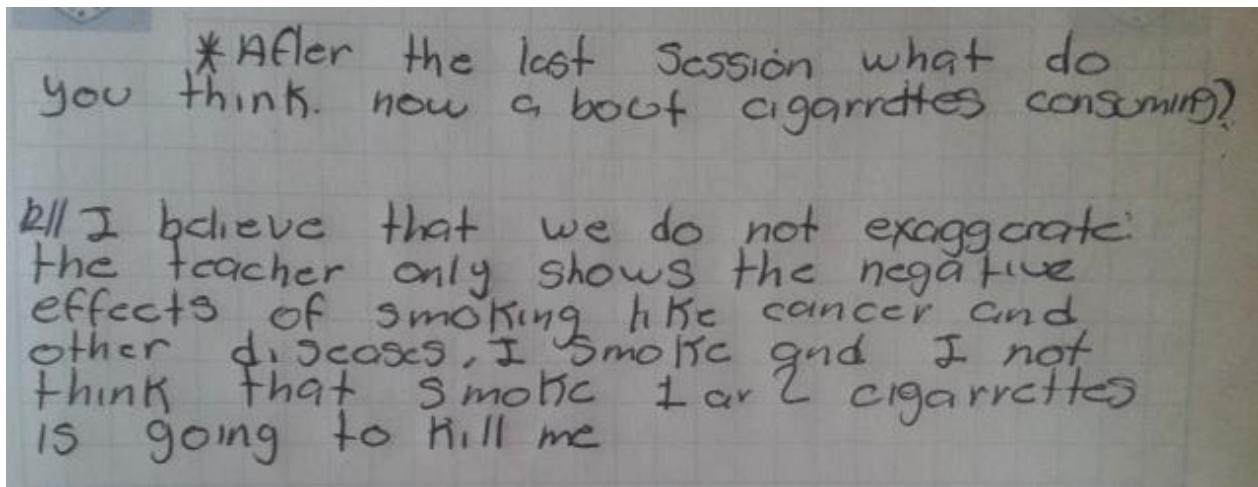 *After the last Session what do
you think. now a bout cigarrettes consuming?
R// I believe that we do not exaggerate:
the teacher only shows the negative
effects of smoking like cancer and
other diseases, I smoke and I not
think that smoke 1 or 2 cigarrettes
is going to kill me